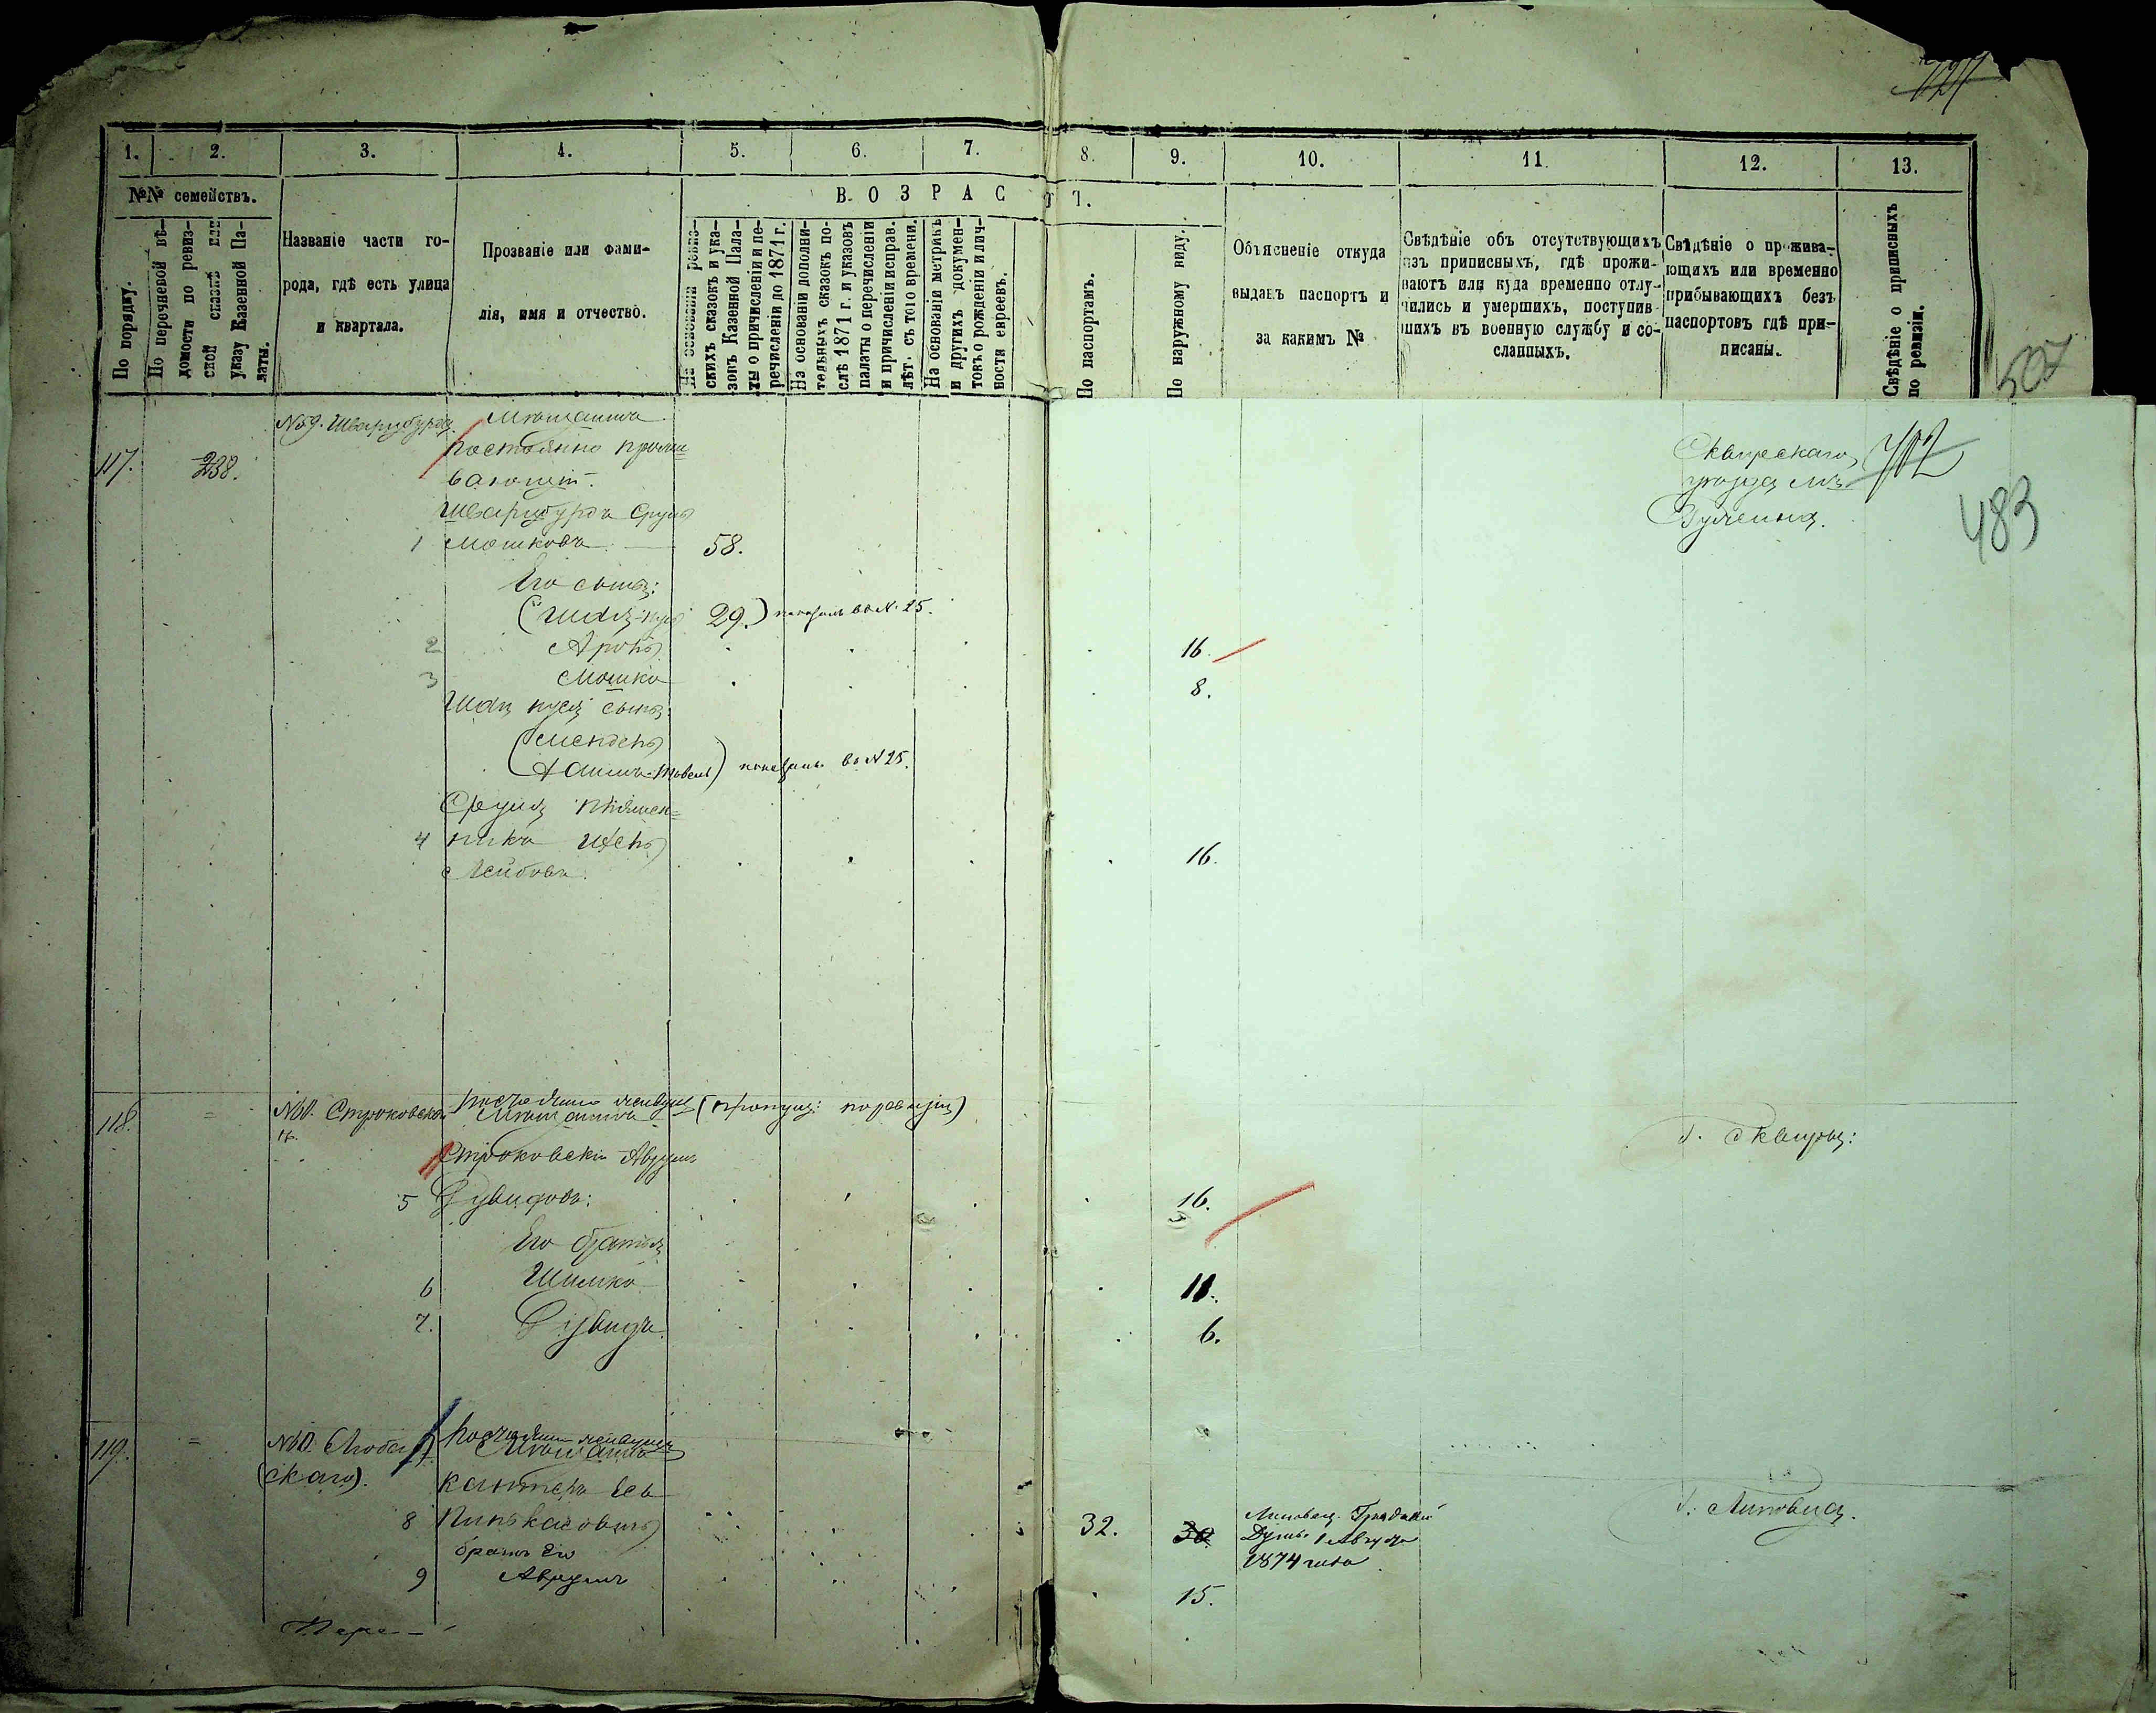 1. 2. 3. 4. 5. 6. 7. 8. 9. 10. 11. 12. 13.
№№ семействъ.
В О З Р А С Т Ъ.
По порядку.
По перечневой вѣ-
домости по ревиз-
ской сказкѣ или
указу Казенной Па-
латы.
Названіе части го-
рода, гдѣ есть улица
и квартала.
Прозваніе или фами-
лія, имя и отчество.
На основаніи ревиз-
скихъ сказокъ и ука-
зовъ Казенной Пала-
ты о причисленіи и пе-
речисленіи до 1871 г.
На основаніи дополни-
тельныхъ сказокъ по-
слѣ 1871 г. и указовъ
палаты о перечисленіи
и причисленіи исправ.
лѣт. съ того времени.
На основаніи метрикъ
и другихъ докумен-
товъ о рожденіи и лич-
ности евреевъ.
По паспортамъ.
По наружному виду.
Объясненіе откуда
выданъ паспортъ и
за какимъ №
Свѣдѣніе объ отсутствующихъ
изъ приписныхъ, гдѣ прожи-
ваютъ или куда временно отлу-
чились и умершихъ, поступив-
шихъ въ военную службу и со-
сланныхъ.
Свѣдѣніе о прожива-
ющихъ или временно
прибывающихъ безъ
паспортовъ гдѣ при-
писаны.
Свѣдѣніе о приписныхъ
по ревизіи.
507
№59. Шварцбурда.
Мѣщанинъ
117. 238.
постоянно прожи
ваютъ.
Сквирскаго
уѣзда м.
402
483
Шварцбурдъ Срулъ
1 Мошковъ 58.
Его сыны:
29.) показанъ во № 25.
2 Аронъ 16.
3 Мошко 8.
сыны:
(Мендель
Хаимъ-) показаны во № 25.
Срула племен-
4 никъ
Лейбовъ. 16.
118. №60. Строковска-
го.
Мѣщанинъ
(пропущ: по ревизіи)
г. Сквиры:
Строковскій Аврумъ
5 Дувидовъ: 16.
Его братья
6 Шимко 11.
7. Дувидъ 6.
119. №60.
(скаго).
Мѣщанинъ
Канторъ
8 Пинькасовичъ 32. 30. Липовец. Градской
Думы 1 Августа
1874 года
г. Липовца.
братъ его
9 Аврумъ 15.
Пере-